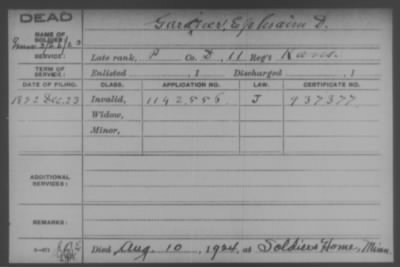 DEAD
Gardner, Ephraim D.
NAME OF
SOLDIER:
SERVICE: Late rank, P Co. D, 11 Reg't Kans.
TERM OF
SERVICE: Enlisted , 1 Discharged , 1
DATE OF FILING. CLASS. APPLICATION NO. LAW. CERTIFICATE NO.
1892 Dec. 23 Invalid, 1142555 J 937377
Widow,
Minor,
ADDITIONAL
SERVICES:
REMARKS:
Died Aug. 10, 1924, at Soldiers Home, Minn.